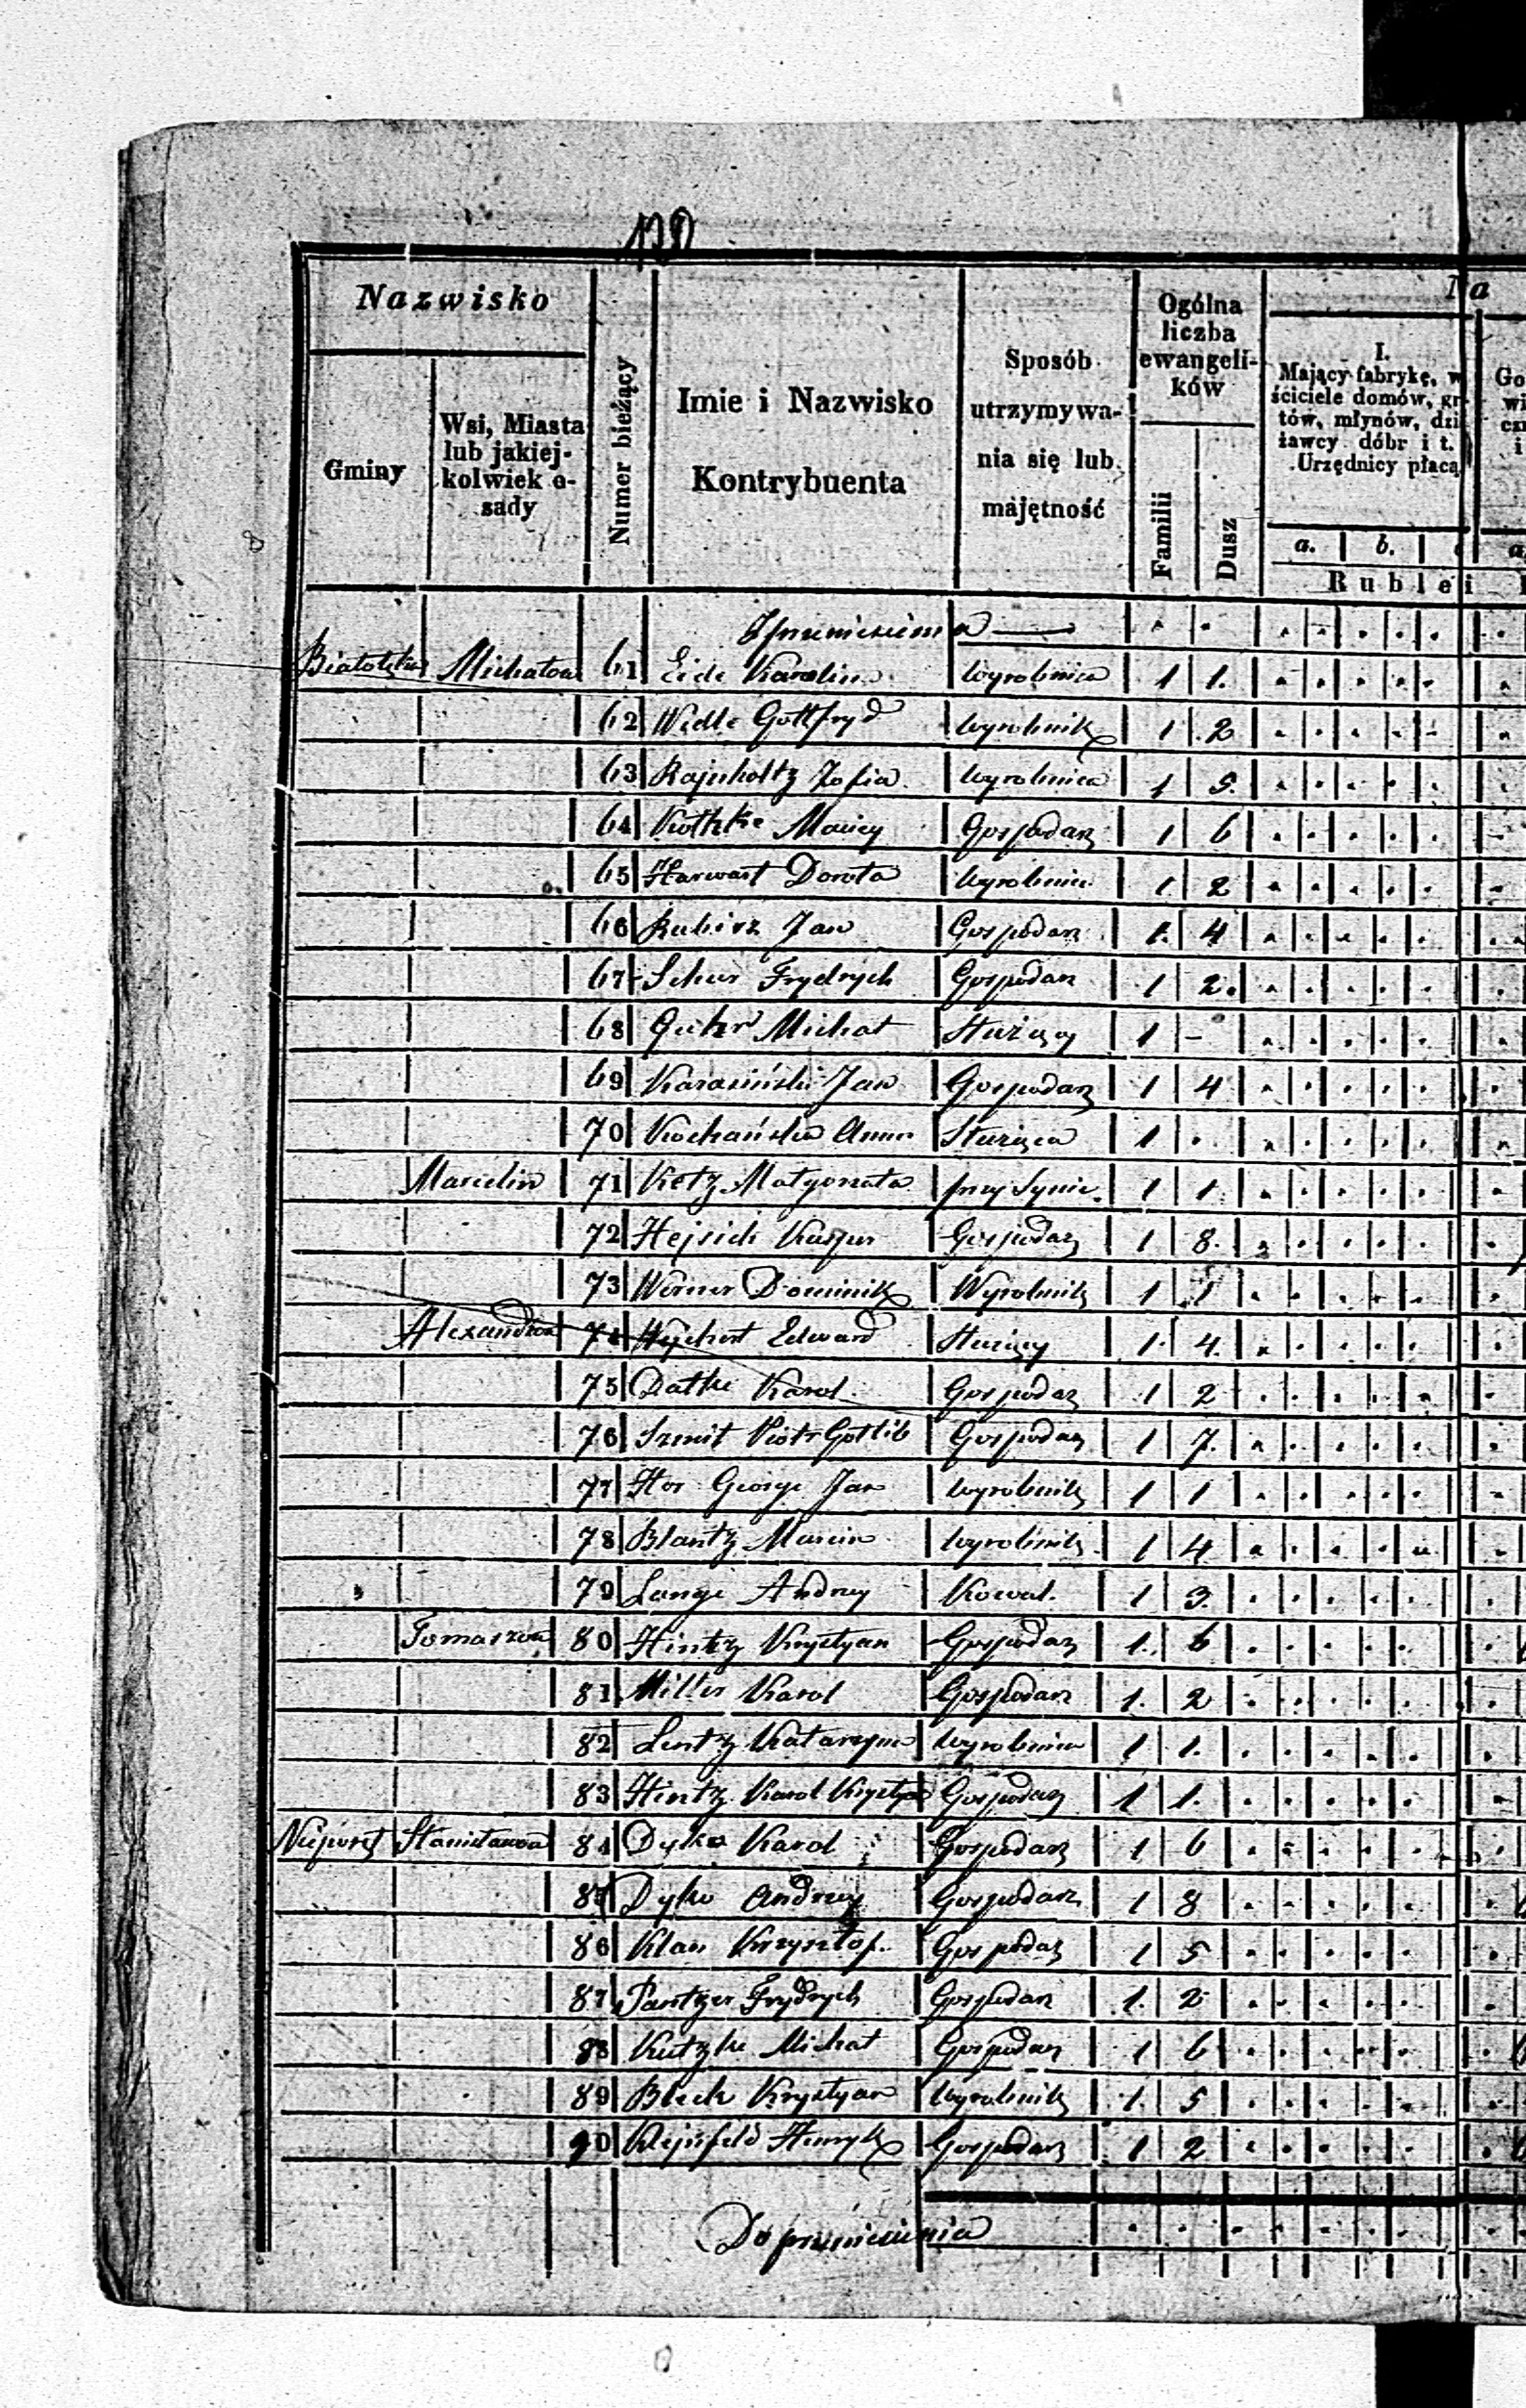 Nazwisko
Gminy
Wsi, Miasta lub jakiej-kolwiek o-sady
Numer bieżący
Imie i Nazwisko Kontrybuenta
Sposób utrzymywa-nia się lub majętność
Ogólna liczba ewangeli-ków
Familii
Dusz
Na
I.
Mający fabrykę, w
ściciele domów, gr
tów, młynów, dzi
żawcy dóbr i t.
Urzędnicy płacą
a. b.
Rublei
Z przeniesienia
Białołęka Michałow 61 Eide Karolina wyrobnica 1 1.
62 Wedle Gottfryd wyrobnik 1 2
63 Rajnholtz Zofia wyrobnica 1 5.
64 Kothke Maciey Gospodarz 1 6
65 Harwart Dorota wyrobnica 1 2
66 Rubisz Jan Gospodarz 1. 4
67 Schur Frydrych Gospodarz 1 2.
68 Michał Służący 1 -
69 Karasiński Jan Gospodarz 1 4
70 Kochańska Anna Służąca 1 .
Marcelin 71 Kotz Małgorzata przy Synie 1 1
72 Hejsich Kasper Gospodarz 1 8.
73 Werner Dominik Wyrobnik 1 1
Alexandrow 74 Wychert Edward Służący 1. 4.
75 Datke Karol Gospodarz 1 2
76 Szmit Piotr Gottlib Gospodarz 1 7.
77 Hor George Jan wyrobnik 1 1
78 Blantz Marcin wyrobnik 1 4
79 Lange Andrzey Kowal. 1 3.
Tomaszow 80 Hintz Krystyan Gospodarz 1. 6
81 Miller Karol Gospodarz 1. 2
82 Lentz Katarzyna wyrobnica 1 1.
83 Hintz Karol Krystyan Gospodarz 1 1.
Nieporęt Stanisławow 84 Dyko Karol Gospodarz 1 6
85 Dyko Andrzey Gospodarz 1 8
86 Klan Krzysztof. Gospodarz 1 5
87 Pantzer Frydrych Gospodarz 1. 2
88 Kutzke Michał Gospodarz 1 6
89 Bleck Krystyan wyrobnik 1. 5
90 Klejnfeld Henryk Gospodarz 1 2
Do przeniesienia